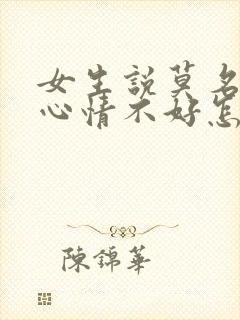 女生說莫名
心情不好怎
陳錦華